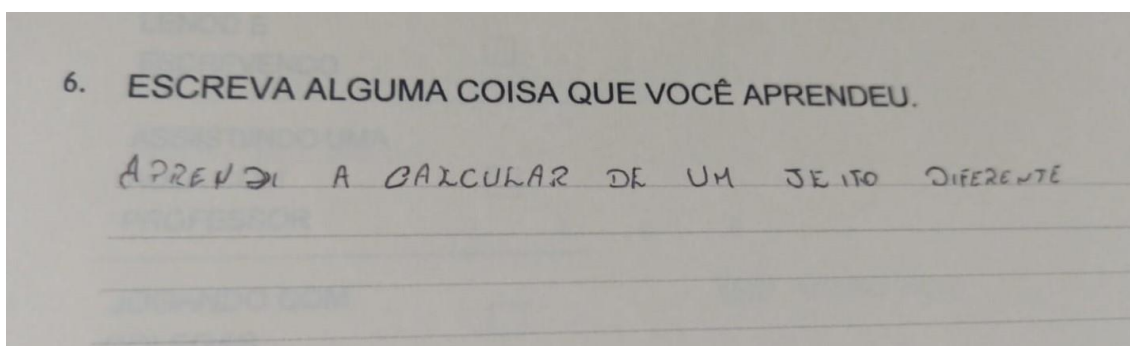 6. ESCREVA ALGUMA COISA QUE VOCÊ APRENDEU.
APRENDI A CALCULAR DE UM JEITO DIFERENTE